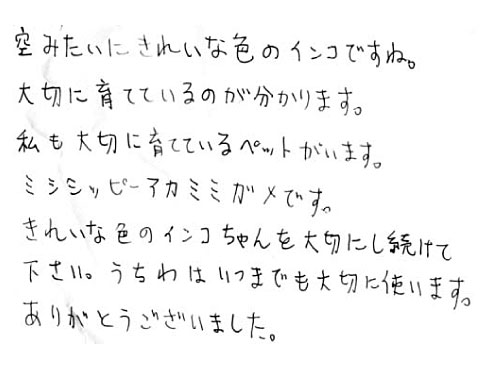 空みたいにきれいな色のインコですね。
大切に育てているのが分かります。
私も大切に育てているペットがいます。
ミシシッピーアカミミガメです。
きれいな色のインコちゃんを大切にし続けて
下さい。うちわはいつまでも大切に使います。
ありがとうございました。